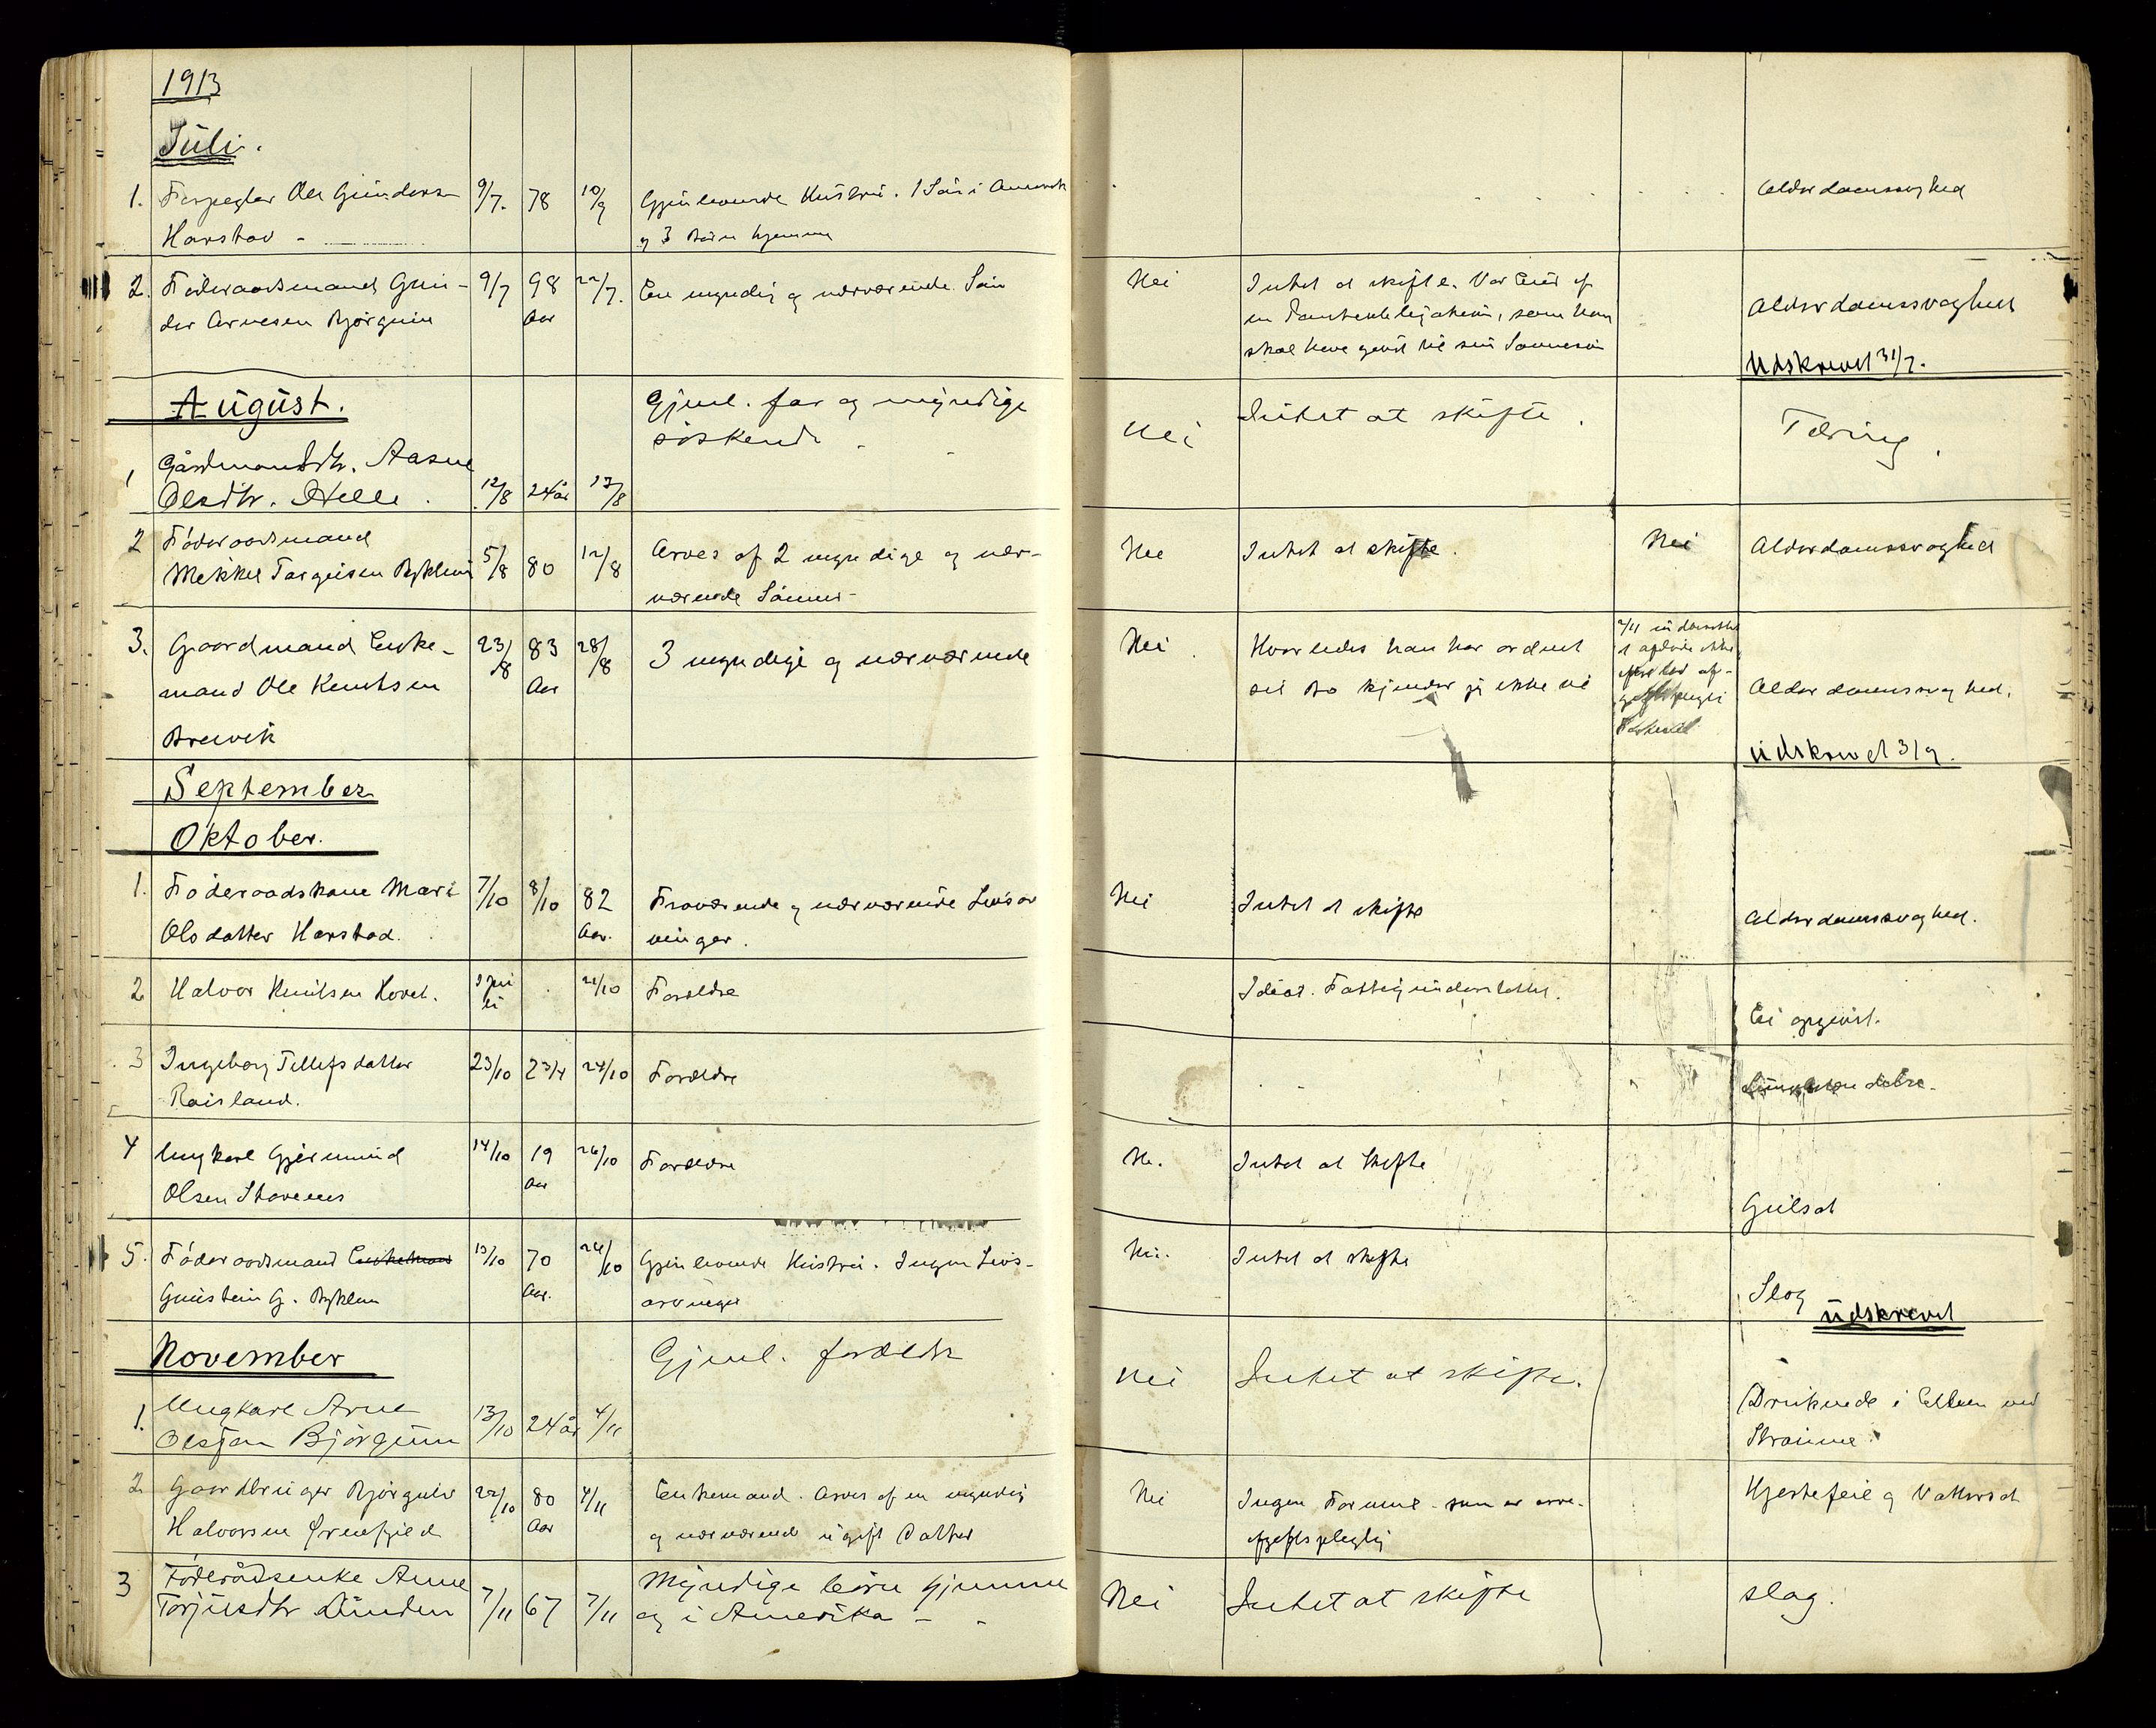 1913
Juli.
1. Ole Gunders- 9/7. 78 10/9 Gjenlevende Hustru. 1 Søn i Amerik Alderdomssvaghed
Harstad - og 3 Børn hjemme
2. Føderaadsmand Gun- 9/7 98 22/7. En myndig og nærværende Søn Nei Intet at skifte. Var Eier af
der Arnesen Bjørgum Aar en Panteobligation, som han Alderdomssvaghed
skal have givet til sin Sønnesøn
Udskrevet 31/7.
August. Gjenl. far og myndige Nei Intet at skifte. Tæring.
søskende -
1 Gårdmandsdtr. Aasne
Olsdtr. Helle. 12/8 24 år 17/8
2 Føderaadsmand
Mikkel Targeisen Ryklem 5/8 80 12/8 Arves af 2 myndige og nær- Nei Intet at skifte. Nei Alderdomssvaghed
værende Sønner-
3. Gaardmand Enke- 23/8 83 28/8 3 myndige og nærværende Nei Hvorledes han har ordnet
mand Ole Knutsen Aar sit Bo kjender jeg ikke til Alderdomssvaghed.
Breivik
udskrevet 3/9.
September
Oktober.
1. Føderaadskone Mari 7/10 8/10 82 Fraværende og nærværende Livsar Nei Intet at skifte Alderdomssvaghed.
Olsdatter Harstad. Aar. vinger.
2 Halvor Knutsen Hovet. 21/10 Forældre Idiot. Fattigunderstøttet. Ei opgivet.
3 Ingeborg Tellefsdatter 23/10 2 3/4 24/10 Forældre
Roisland.
4 Ungkarl Gjermund 14/10 19 26/10 Forældre Ne. Intet at skifte
Olsen Stavenes Aar Gulsot
5. Føderaadsmand Enkemand 15/10 70 26/10 Gjenlevende Hustru. Ingen Livs- Nei. Intet at skifte
Gunstein G. Ryklem Aar. arvinger Slag udskrevet
November Gjenl. forældr Nei Intet at skifte.
1. Ungkarl Arne Druknede i Elven ved
Olsøn Bjørgum 13/10 24 år 4/11 Straume.
2 Gaardbruger Bjørgulv 22/10 80 4/11 Enkemand. Arves af en myndig Nei Ingen Formue som er arve- Hjertefeil og Vattersot
Halvorsen Ørnefjeld Aar og nærværende ugift Datter afgiftspligtig
3 Føderådsenke Anne Myndige børn hjemme Nei Intet at skifte slag.
Torjusdtr 7/11 67 7/11 og i Amerika -